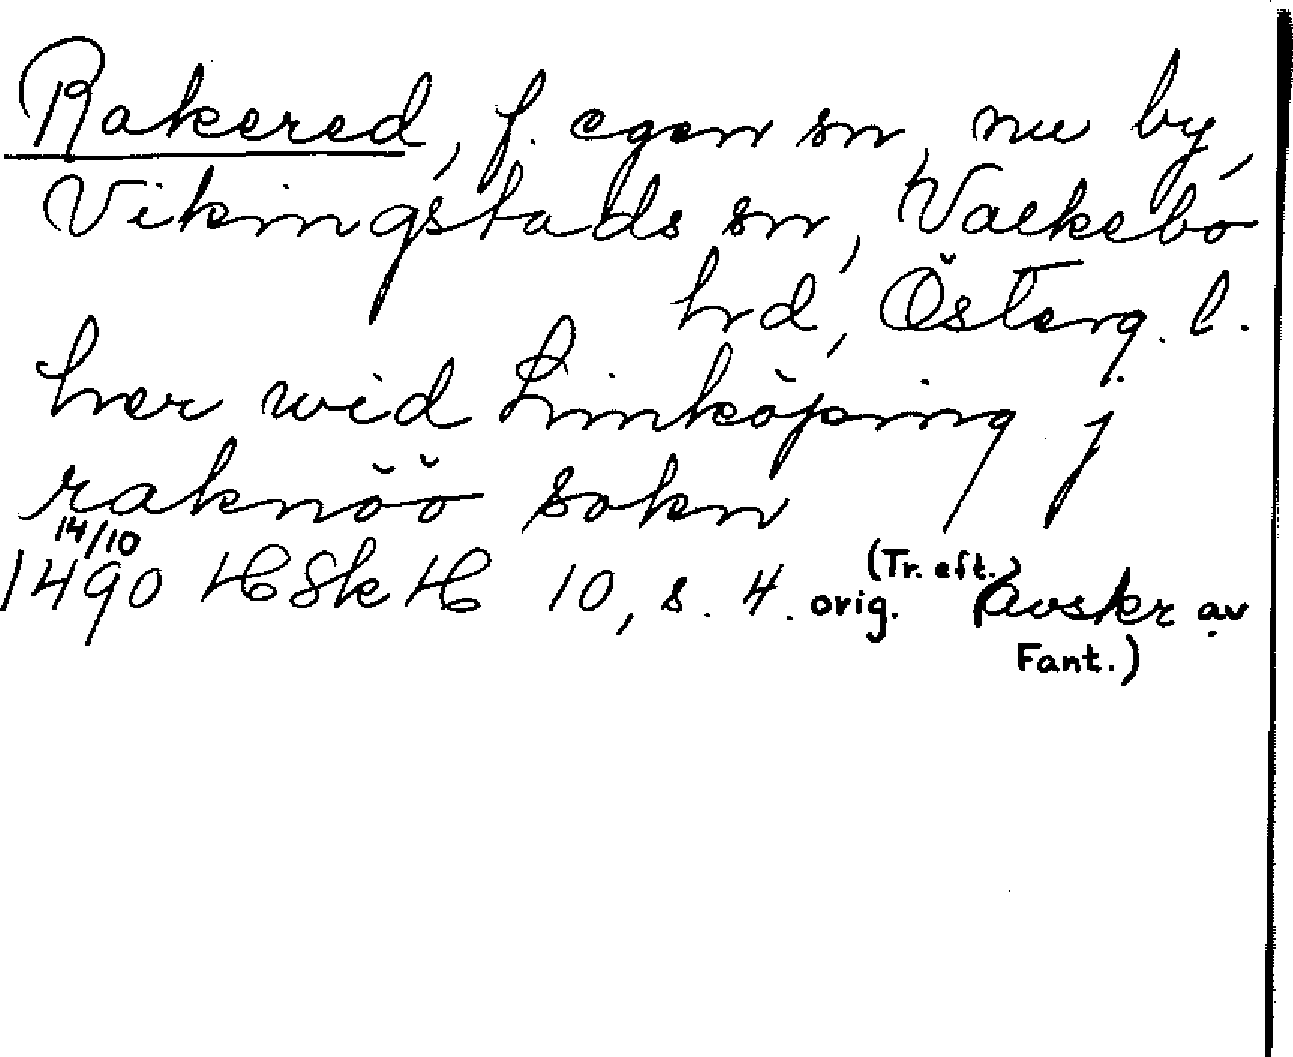 Rakered, f. egen sn, nu by,
Vikingstads sn, Valkebo
hrd, Österg. l.
her wid Linköping j
raknöö sokn
14/10
1490 HSkH 10, s. 4. (Tr. eft. orig.) (avskr av
Fant.)